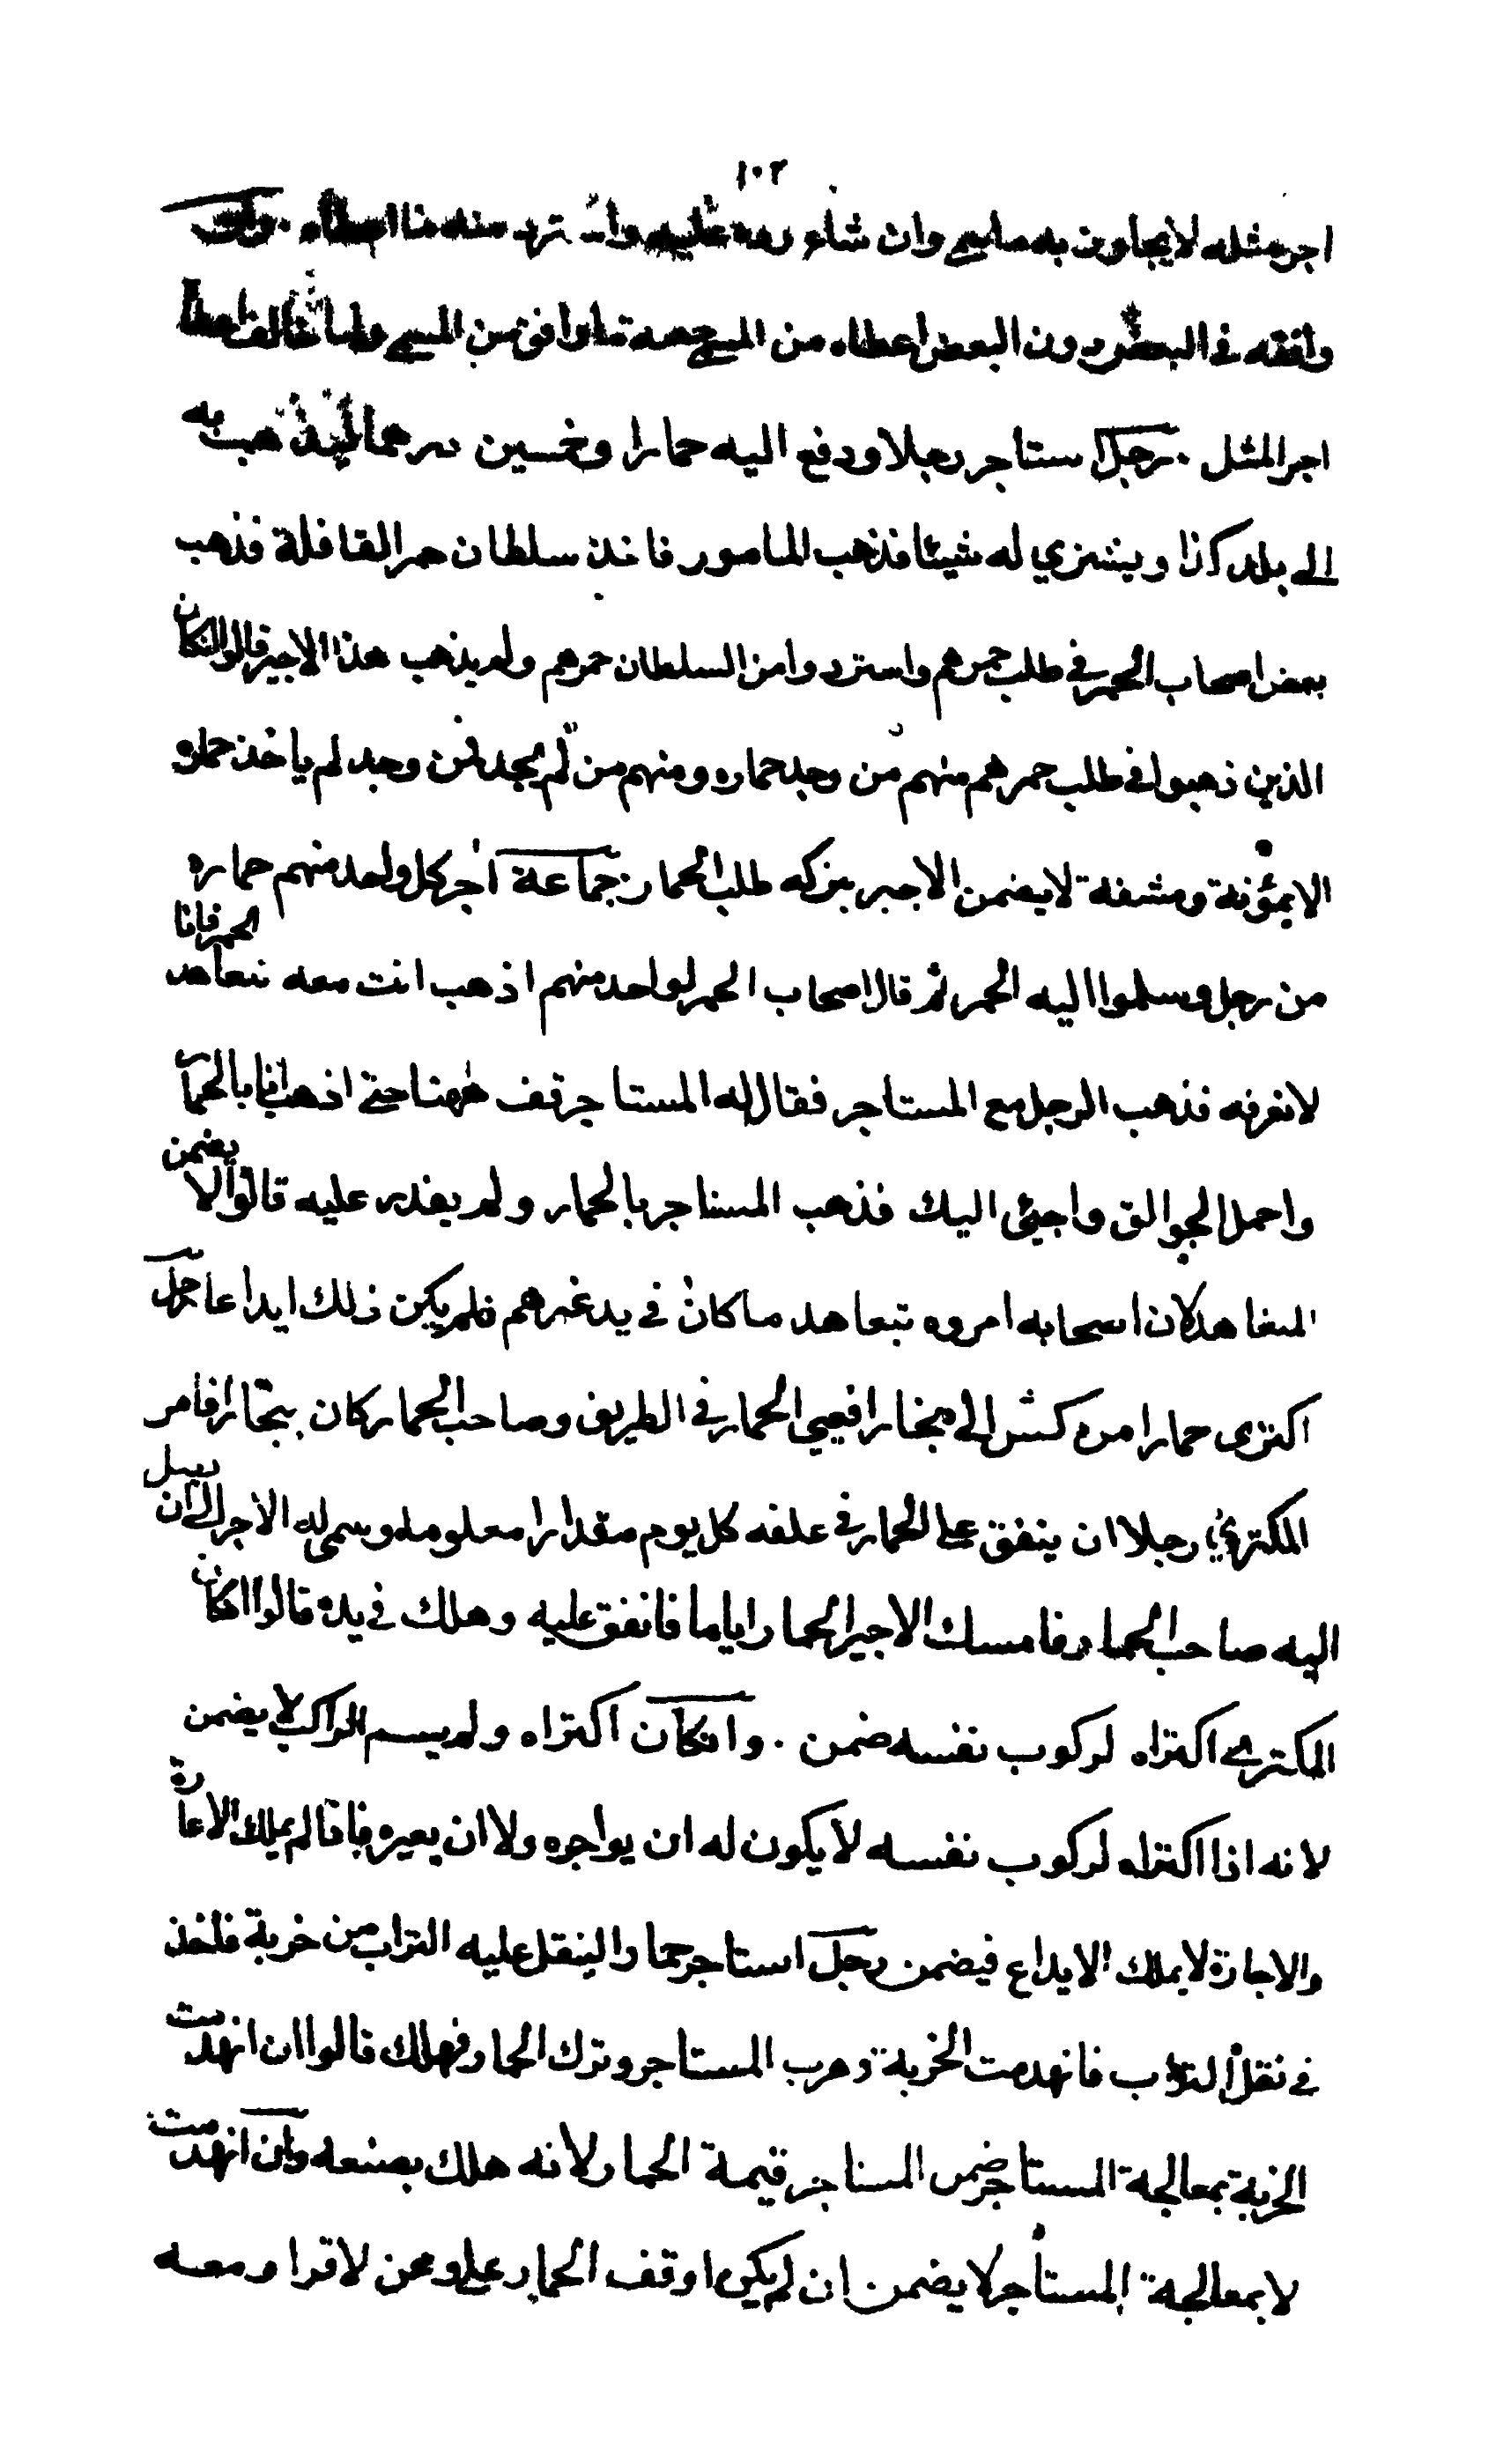 ١٠٢
اجر مثله لا يجاوز به ما سمى وان شاء رده عليه واسترد منه ما اعطاه . وان
وافقه في البعض دون البعض اعطاه من المسمى حصة ما وافق من المسمى وفيما خالف اعطاه
اجر المثل . رجل استاجر رجلا ودفع اليه حمارا وخمسين درهما ليذهب به
الى بلد كذا ويشتري له شيئا فذهب المامور فاخذ سلطان حمر القافلة فذهب
بعض اصحاب الحمر في طلب حمرهم واستردوا من السلطان حمرهم ولم يذهب هذا الاجير قالوا ان كان
الذين ذهبوا في طلب حمرهم منهم من وجد حماره ومنهم من لم يجد فمن وجد لم ياخذ حماره
الا بمؤنة ومشقة لا يضمن الاجير بتركه طلب الحمار . جماعة اجر كل واحد منهم حماره
من رجل وسلموا اليه الحمر ثم قال اصحاب الحمر لواحد منهم اذهب انت معه تتعاهد الحمر فانا
لا نعرفه فذهب الرجل مع المستاجر فقال له المستاجر قف ههنا حتى اذهب انا بالحمار
واحمل الجوالق واجيئ اليك فذهب المستاجر بالحمار ولم يقدر عليه قالوا لا يضمن
المتعاهد لان اصحابه امروه بتعاهد ما كان في يد غيرهم فلم يكن ذلك ايداعا رجل
اكترى حمارا من كش الى بخارا فعيي الحمار في الطريق وصاحب الحمار كان ببخارا فامر
المكتري رجلا ان ينفق على الحمار في علفه كل يوم مقدارا معلوما وسمى له الاجر الى ان يصل
اليه صاحب الحمار فامسك الاجير الحمار اياما فانفق عليه وهلك في يده قالوا ان كان
المكتري اكتراه لركوب نفسه ضمن . وان كان اكتراه ولم يسم الراكب لا يضمن
لانه اذا اكتراه لركوب نفسه لا يكون له ان يواجره ولا ان يعيره فاذا لم يملك الاعارة
والاجارة لا يملك الايداع فيضمن رجل استاجر حمارا لينقل عليه التراب من خربة فاخذ
في نقل التراب فانهدمت الخربة وهرب المستاجر وترك الحمار فهلك قالوا ان انهدمت
الخربة بمعالجة المستاجر ضمن المستاجر قيمة الحمار لانه هلك بصنعه وان انهدمت
لا بمعالجة المستأجر لا يضمن ان لم يكن اوقف الحمار على وهن لا قرار معه